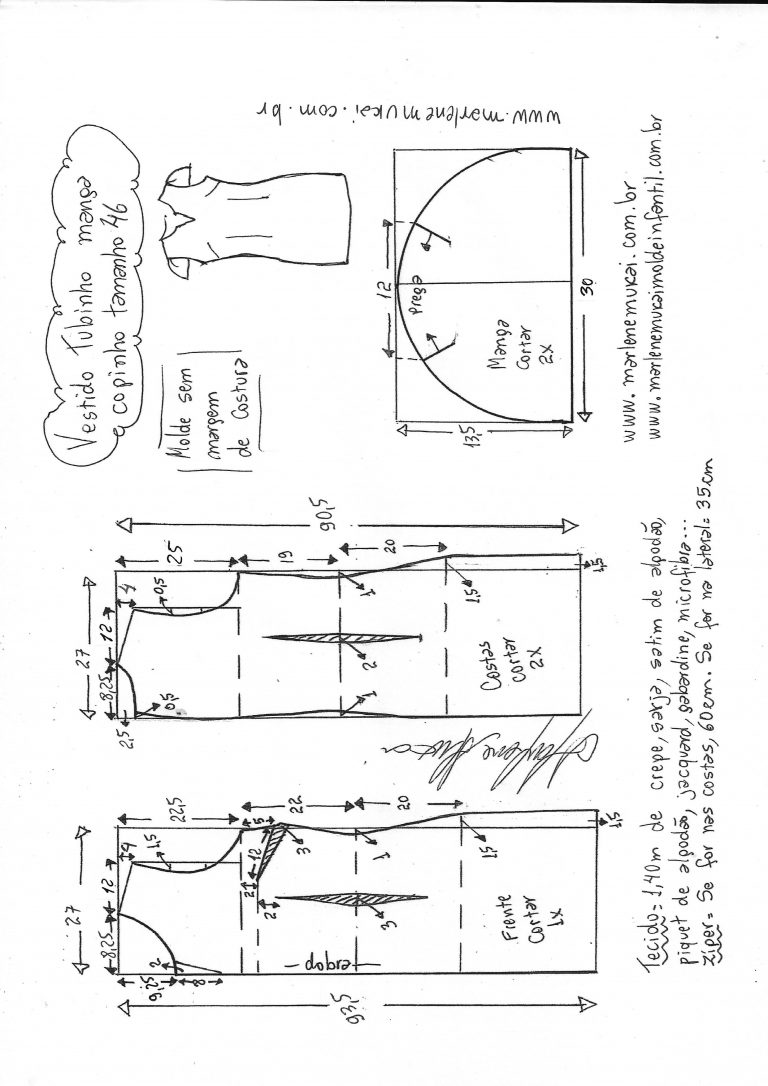 Vestido Tubinho manga
copinho tamanho 46
Molde sem
margem
de Costura
www.marlenemukai.com.br
93,5
27
8,25
12
4
22,5
1,5
9,25
2
8
22
5
20
12
3
2
2
3
1
1,5
1,5
dobra
Frente
Cortar
1x
90,5
27
8,25
12
4
25
0,5
2,5
0,5
19
20
1
2
1
1,5
1,5
Costas
cortar
2x
12
Prega
Manga
cortar
2x
13,5
30
www.marlenemukai.com.br
www.marlenemukaimoldeinfantil.com.br
Tecido= 1,40m de crepe, sarja, satim de algodão,
piquet de algodão, jacquard, gabardine, microfibra...
zíper= Se for nas costas, 60cm. Se for na lateral= 35cm